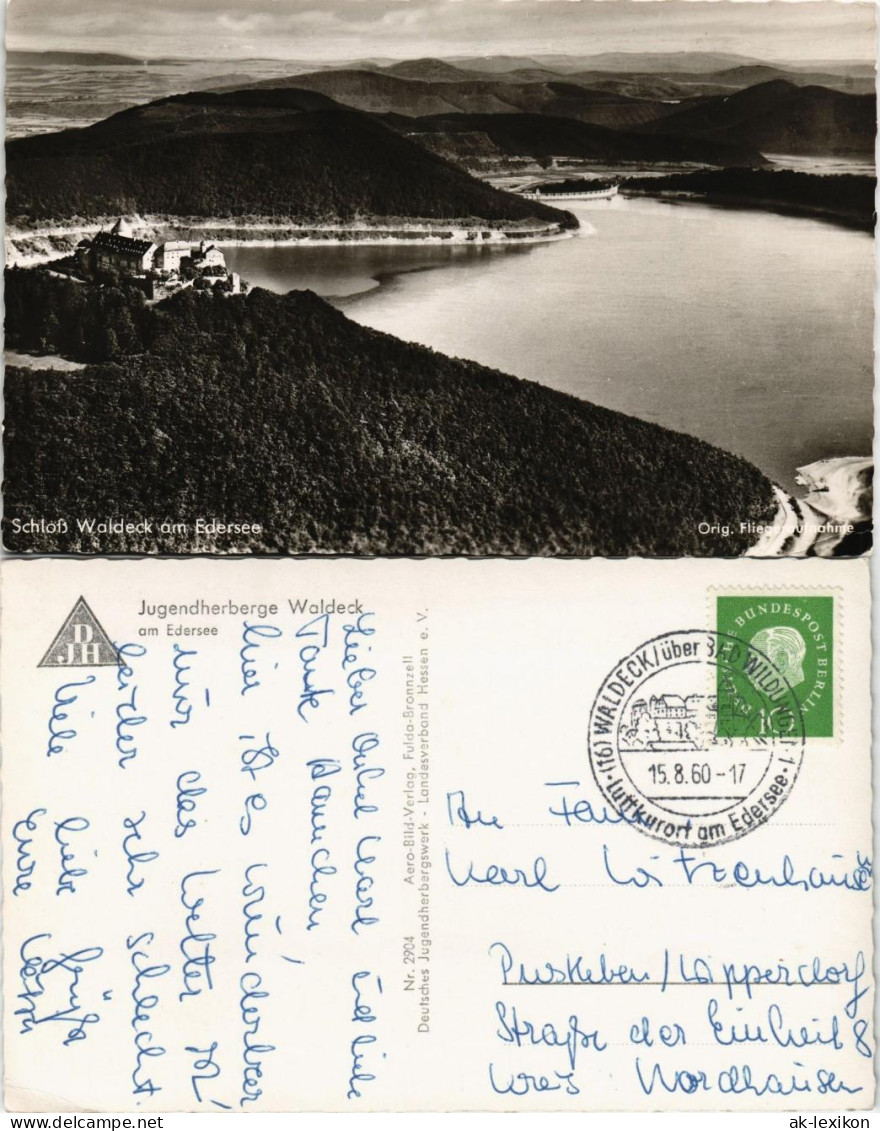 Schloß Waldeck am Edersee
Orig. Fliegeraufnahme
DJH
Jugendherberge Waldeck
am Edersee
Lieber Onkel Karl und liebe
Tante Hannchen!
hier ist es wunderbar
nur das Wetter
leider sehr schlecht.
Viele liebe Grüße
Eure
Nr. 2904 Aero-Bild-Verlag, Fulda-Bronnzell
Deutsches Jugendherbergswerk - Landesverband Hessen e. V.
DEUTSCHE BUNDESPOST BERLIN
10
(16) WALDECK/über BAD WILDUNGEN 1
15.8.60-17
Luftkurort am Edersee
An Fam.
Karl
Pustleben/Wipperdorf
Straße der Einheit 8
Kreis Nordhausen
ak-lexikon